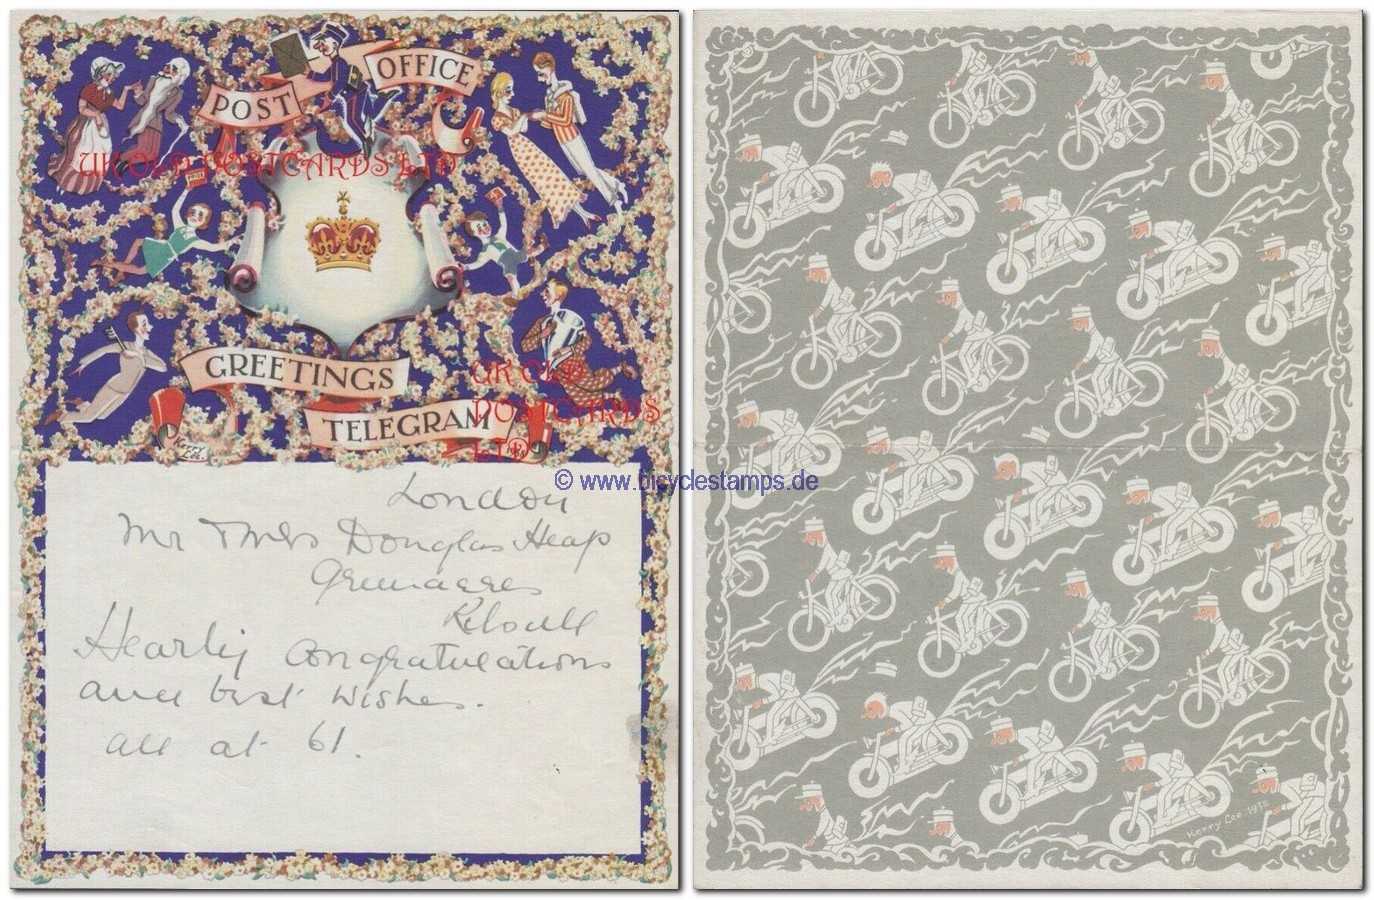 POST OFFICE
UK OLD POSTCARDS LTD
GREETINGS
TELEGRAM
UK OLD
POSTCARDS
LTD
© www.bicyclestamps.de
London
Mr & Mrs Douglas Heap
Greenacres
Hearty Congratulations
and best wishes.
all at 61.
Kerry Lee 1938